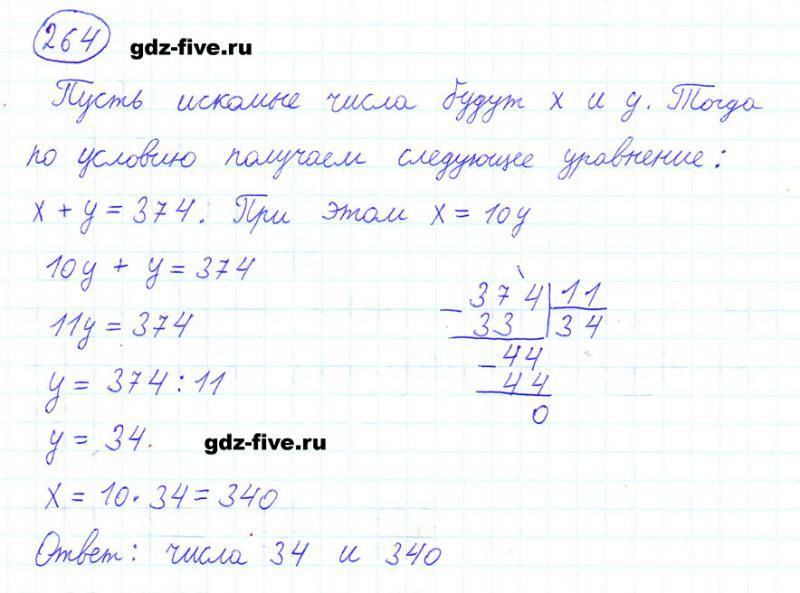 264 gdz-five.ru
Пусть искомые числа будут x и y. Тогда
по условию получаем следующее уравнение:
x + y = 374. При этом x = 10y
10y + y = 374
11y = 374
y = 374 : 11
y = 34.
x = 10 · 34 = 340
Ответ: числа 34 и 340
374 | 11
- 33 | 34
44
- 44
0
gdz-five.ru